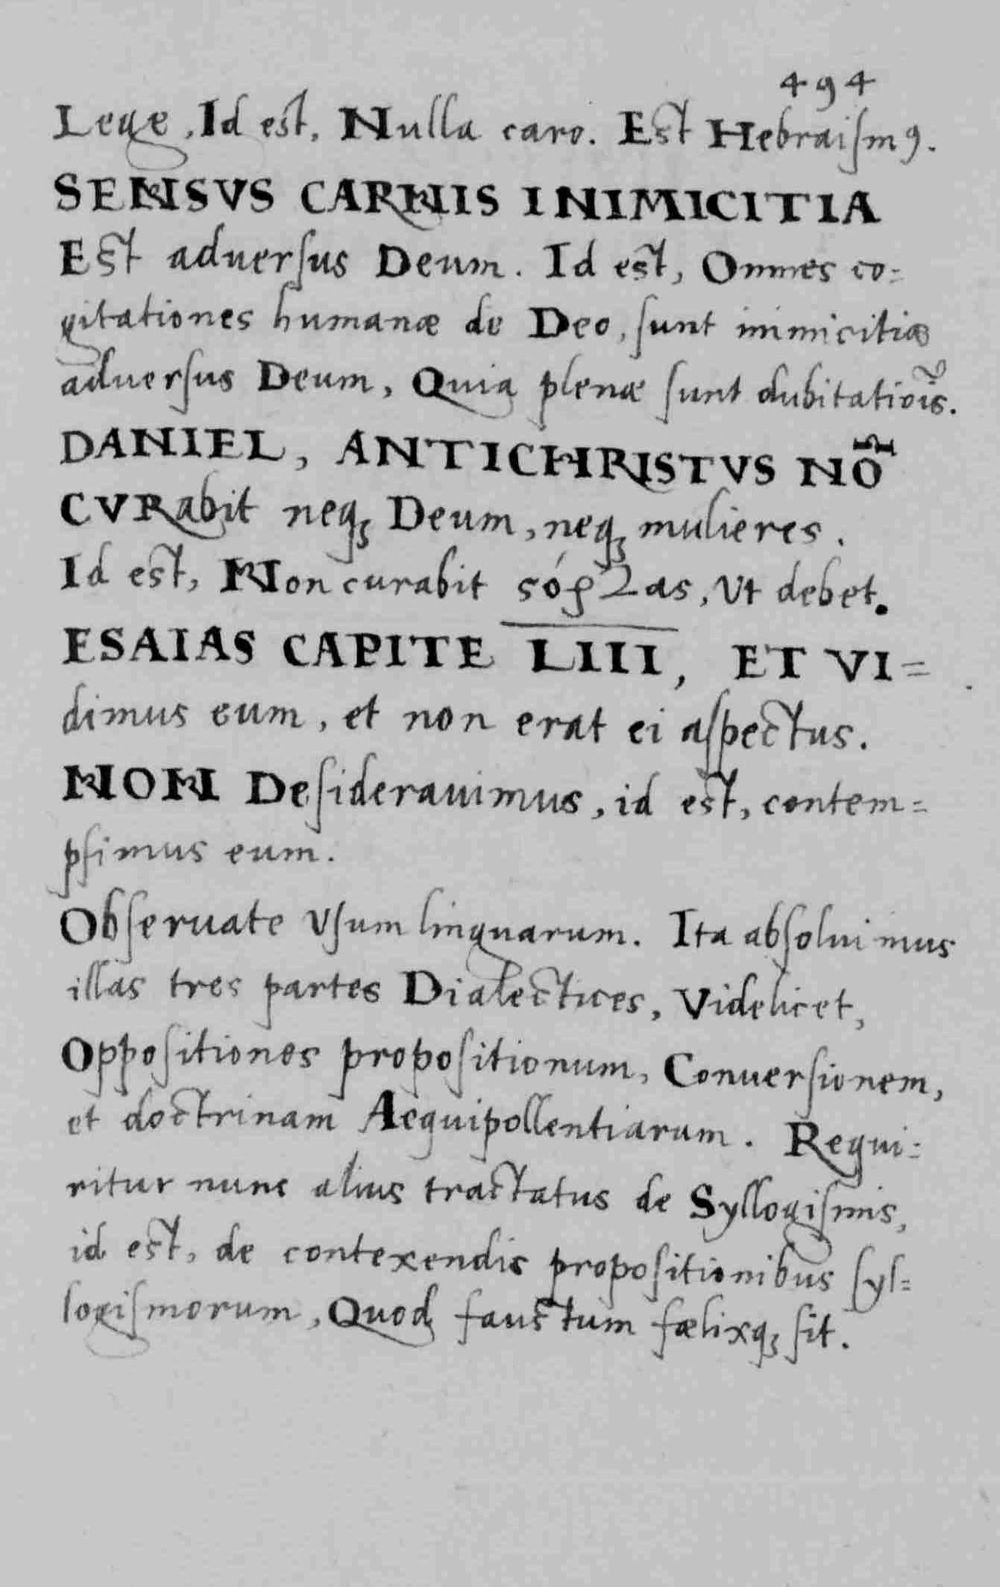 494
Lege, Id est, Nulla caro. Est Hebraiſmꝰ.
SENSVS CARNIS INIMICITIA
Est aduerſus Deum. Id est, Omnes co-
gitationes humanæ de Deo, ſunt inimicitiæ
aduerſus Deum, Quia plenæ ſunt dubitatiois̃.
DANIEL, ANTICHRISTVS NÕ
CVRabit neqꝫ Deum, neqꝫ mulieres.
Id est, Non curabit, Vt debet.
ESAIAS CAPITE LIII, ET VI=
dimus eum, et non erat ei aſpectus.
NON Deſiderauimus, id est, contem=
pſimus eum.
Obſeruate Vſum linguarum. Ita abſoluimus
illas tres partes Dialectices, Videlicet,
Oppoſitiones propoſitionum, Conuerſionem,
et doctrinam Aequipollentiarum. Requi=
ritur nunc alius tractatus de Syllogiſmis,
id est, de contexendis propoſitionibus ſyl=
logiſmorum, Quod fauſtum fælixqꝫ ſit.